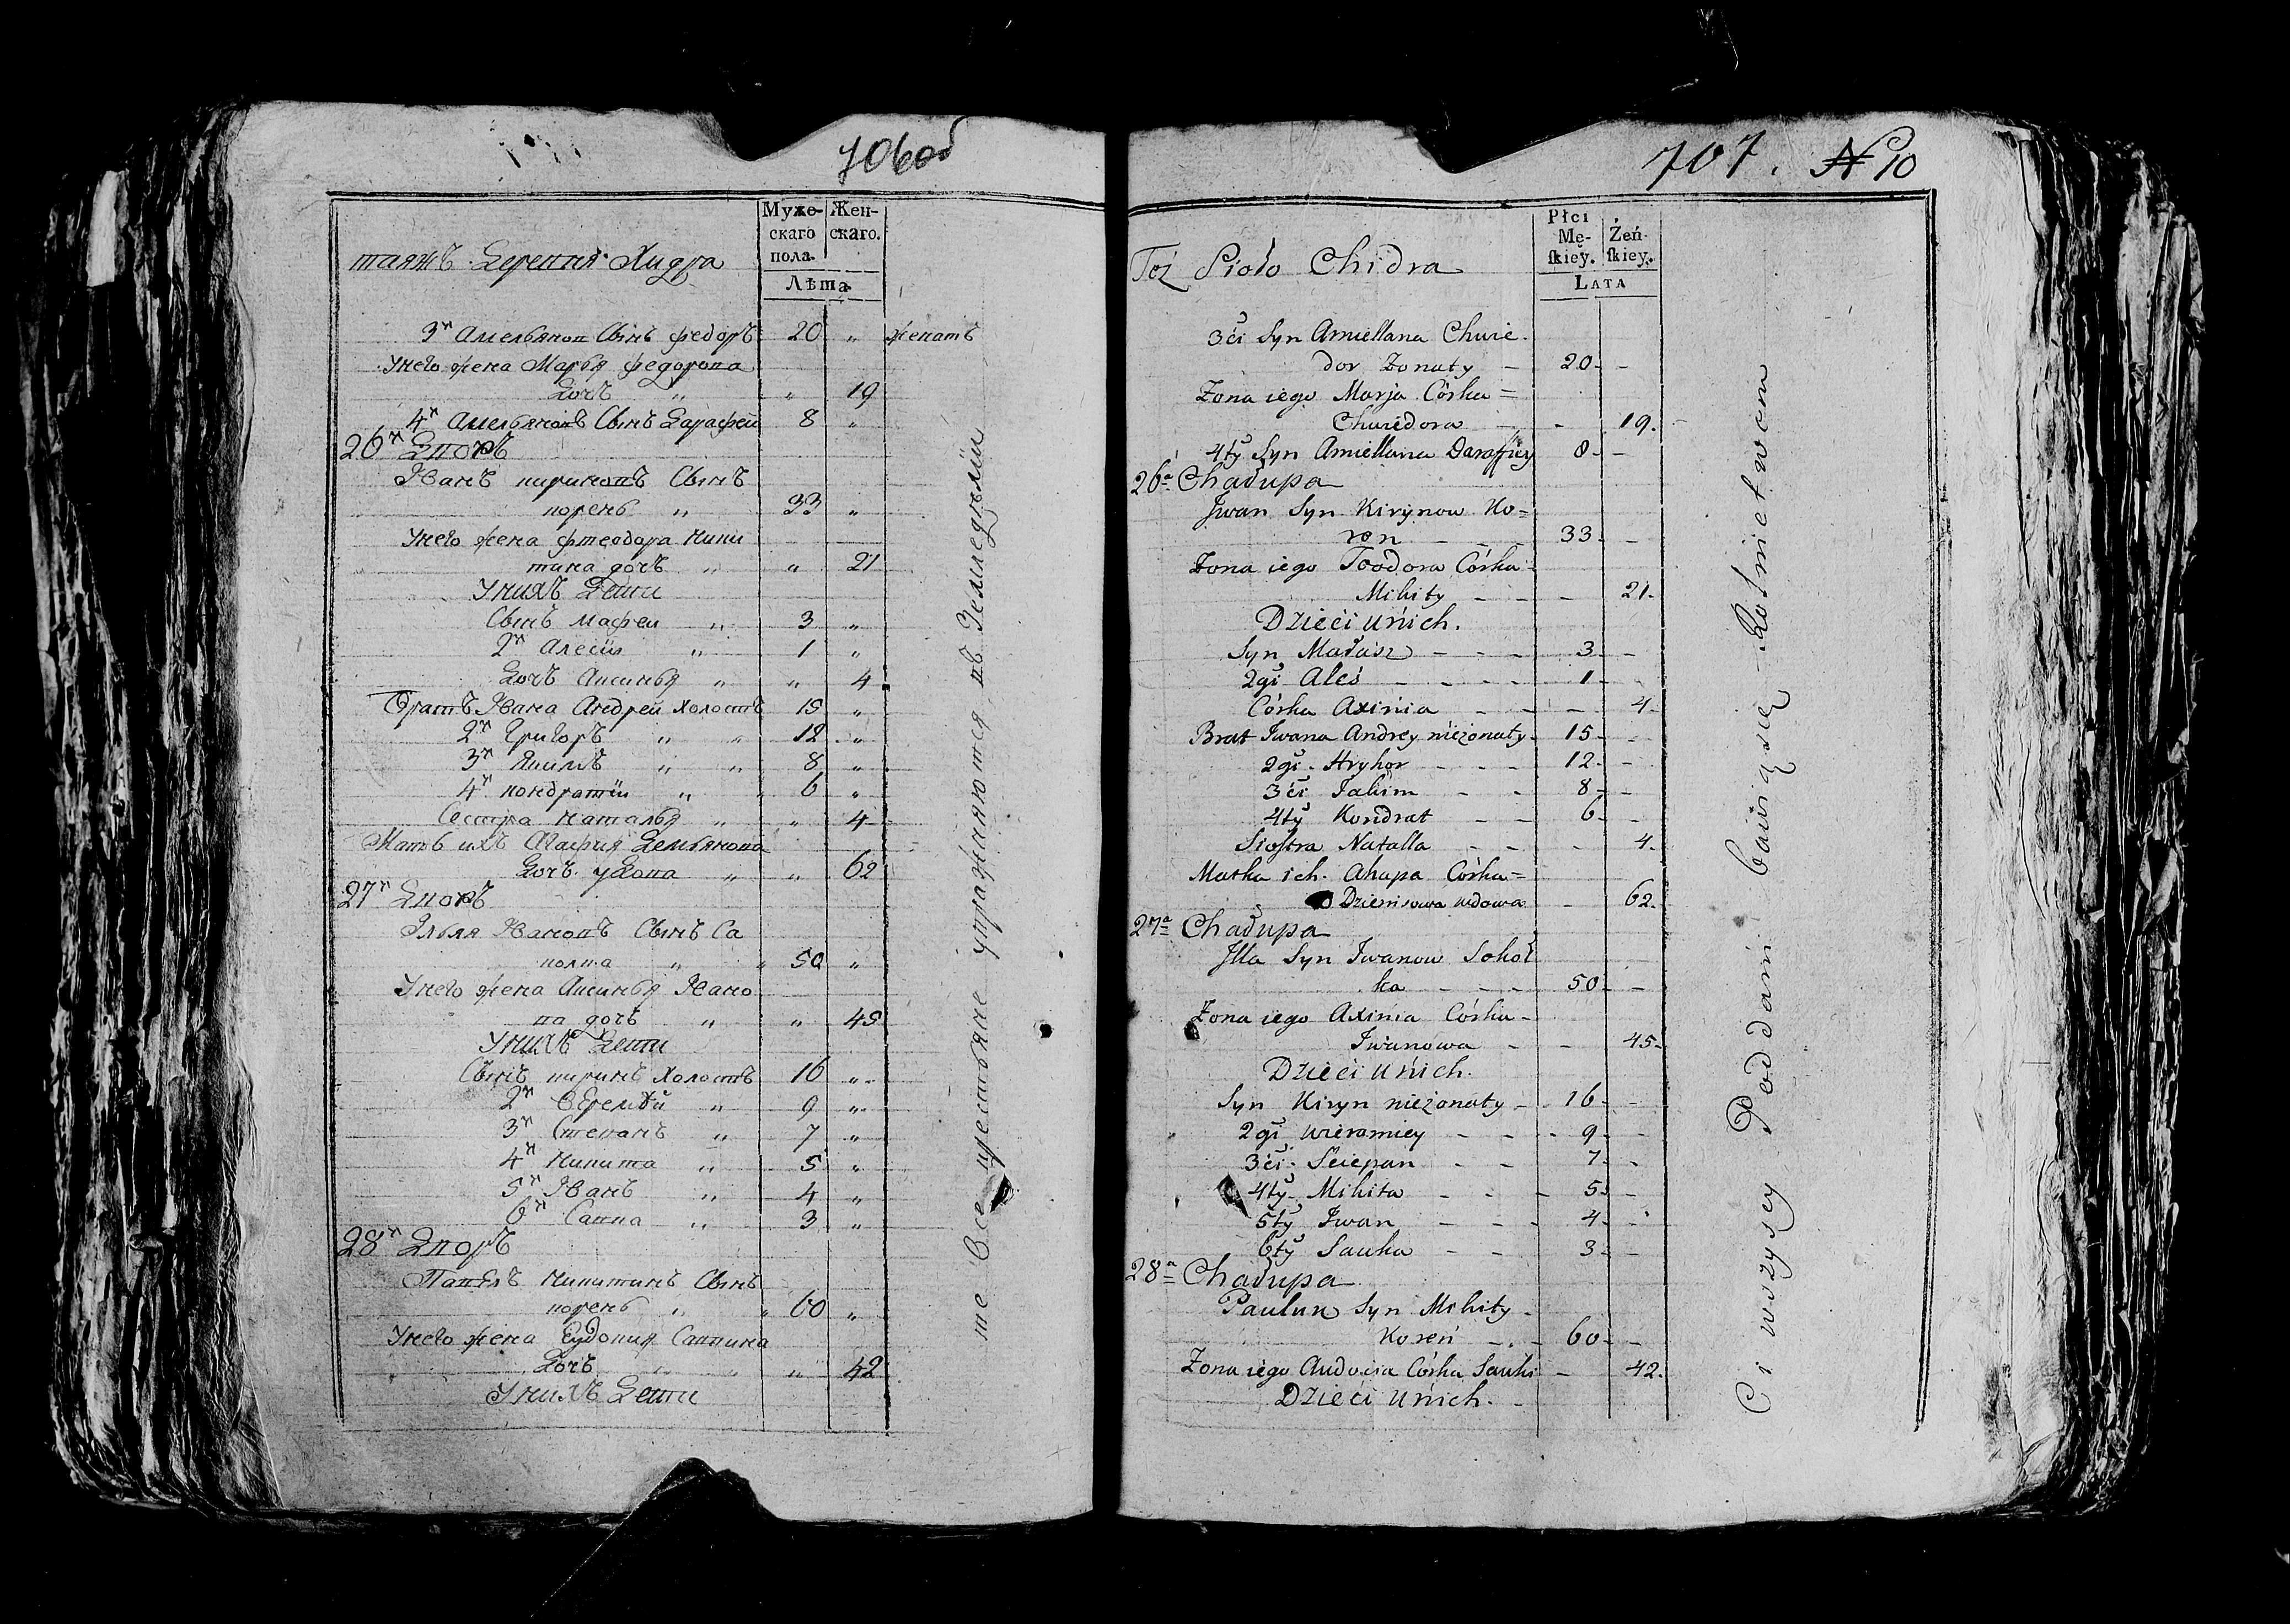 706об
Мужескаго пола.
Женскаго.
Лѣта
таяжъ Деревня Хидра
3й Амельянов Сынъ федоръ 20 „ женатъ
Унего жена Марья федорова
Дочъ „ „ 19
4й Амельяновъ Сынъ Дарафей 8 „
26й Дворъ
Иванъ Кириновъ Сынъ
корень „ 33 „
Унего жена фтеодора Мики
тина дочъ „ „ 21
Унихъ Дети
Сынъ Мафеи „ 3 „
2й Алесіи „ 1 „
Дочъ Аксинья „ „ 4
Братъ Ивана Андреи Холостъ 15 „
2й Григоръ „ „ 12 „
3й Якимъ „ „ 8 „
4й Кондратіи „ „ 6 „
Сестра Наталья „ „ 4
Мать ихъ Агафия Демьянова
Дочъ удова „ „ 62
27й Дворъ
Илья Ивановъ Сынъ Са
колка „ „ 50 „
Унего жена Аксинья Ивано
ва дочъ „ „ 45
Унихъ Дети
Сынъ киринъ Холостъ 16 „
2й Еремѣй „ 9 „
3й Степанъ „ 7 „
4й Микита „ 5 „
5й Иванъ „ 4 „
6й Савка „ 3 „
28й Дворъ
Павелъ Микитинъ Сынъ
корень „ „ 60 „
Унего жена Еудокия Савкина
Дочъ „ „ „ 42
Унихъ Дети
те Все крестьяне упражняются въ Земледѣліи
707. N 10
Płci Męſkiey.
Żeńſkiey.
LATA
Toż Sioło Chidra
3ci Syn Amiellana Chwie-
dor Żonaty - 20 - -
Żona iego Marja Córka =
Chwiedora - - 19.
4ty Syn Amiellana Daraffiey 8 - -
26a Chałupa
Jwan Syn Kirynow Ko=
ren - - - 33 - -
Żona iego Teodora Córka -
Mikity - - - 21 -
Dzieci unich.
Syn Matasz - - - 3 - -
2gi Aleś - - - - 1 - -
Córka Axinia - - - 4 -
Brat Jwana Andrey nieżonaty - 15 - -
2gi Hryhor - - - 12 - -
3ci Jakim - - 8 - -
4ty Kondrat - - 6 - -
Siostra Natalla - - - - 4.
Matka ich. Ahapa Córka =
Dzienisowa wdowa - 62.
27a Chałupa
Jlla Syn Jwanow Sokoł
ka - - - 50 - -
Żona iego Axinia Córka -
Iwanowa - - 45 -
Dzieci unich.
Syn Kiryn nieżonaty - 16 - -
2gi Wieramiey - - - 9 - -
3ci Sciepan - - 7 - -
4ty Mikita - - - 5 - -
5ty Jwan - - - 4 - -
6ty Sauka - - 3 - -
28a Chałupa
Pauluk Syn Mikity -
Koreń - - 60 - -
Żona iego Audocia Córka Sauki - 42.
Dzieci unich. -
Ci wszyscy Poddani bawią się Rolnictwem